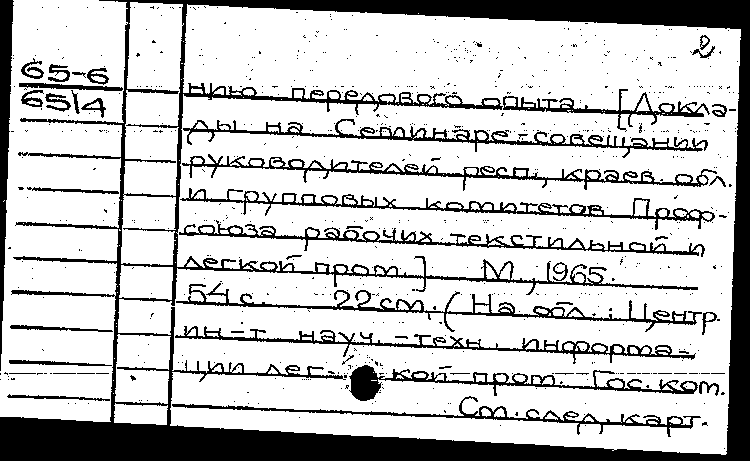 2
65-6
6514
нию передового опыта. [Докла-
ды на Семинаре-совещании
руководителей респ., краев. обл.
и групповых комитетов Проф-
союза рабочих текстильной и
легкой пром.] М., 1965.
54 с. 22 см. (На обл.: Центр.
ин-т науч.-техн. информа-
ции лег-кой пром. Гос. ком.
См. след. карт.